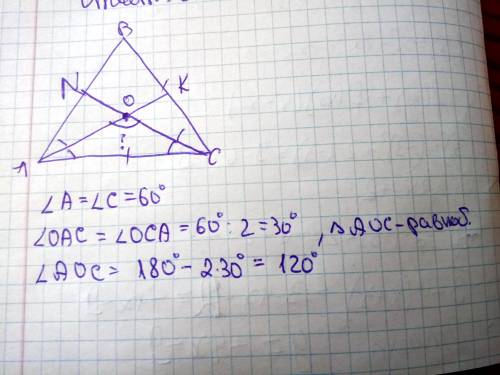 B
N
K
O
?
A
C
∠A = ∠C = 60°
∠OAC = ∠OCA = 60° : 2 = 30°, △AOC - равноб.
∠AOC = 180° - 2·30° = 120°